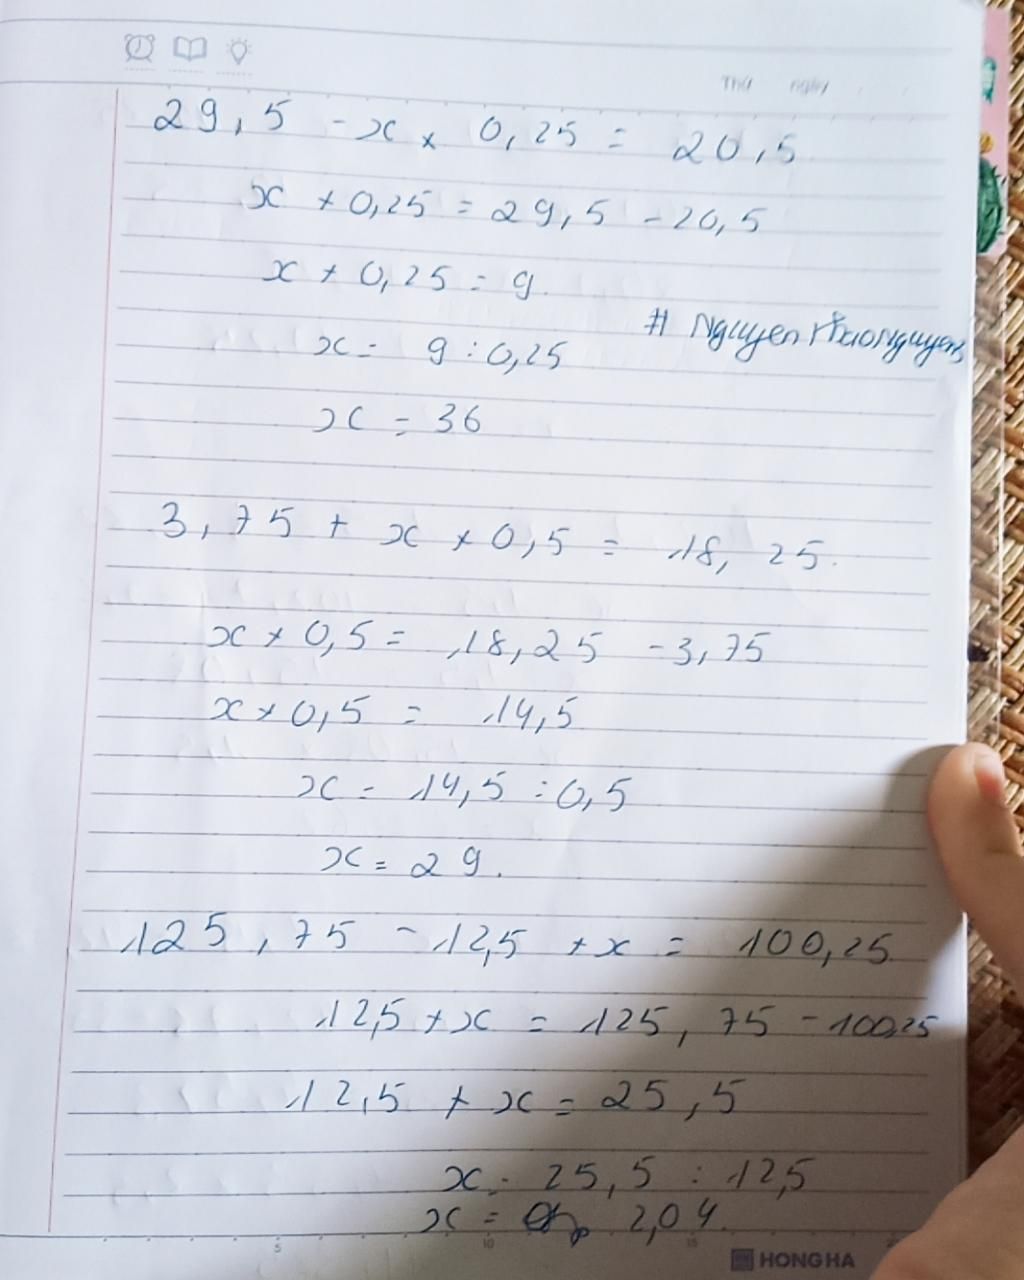 Thứ ngày
29,5 - x × 0,25 = 20,5
x × 0,25 = 29,5 - 20,5
x × 0,25 = 9.
# Nguyen Thao Nguyen
x = 9 : 0,25
x = 36
3,75 + x × 0,5 = 18,25.
x × 0,5 = 18,25 - 3,75
x × 0,5 = 14,5
x = 14,5 : 0,5
x = 29.
125,75 - 12,5 × x = 100,25
12,5 × x = 125,75 - 100,25
12,5 × x = 25,5
x = 25,5 : 12,5
x = 2,04.
5 10 15
HONG HA